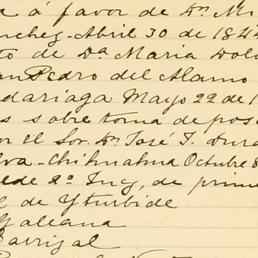 a á favor de Dn. Mi
nchez - Abril 30 de 184
to de Da. Maria Dol
an Pedro del Alamo
dariaga Mayo 22 de 1
s sobre toma de pos
or el Sor. Dn. José I. Dura
lva - Chihuahua Octubre 8
ede 2o. Ing, de prime
de Yturbide
Galeana
Carrizal